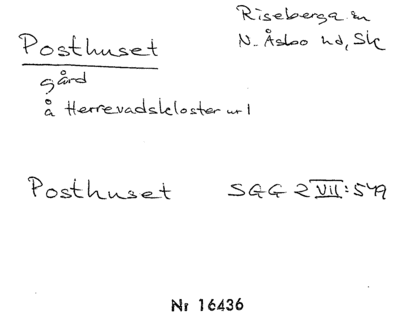 Riseberga sn
Posthuset
N. Åsbo hd, Sk
gård
å Herrevadskloster nr 1
Posthuset SGG 2 VII:549
Nr 16436